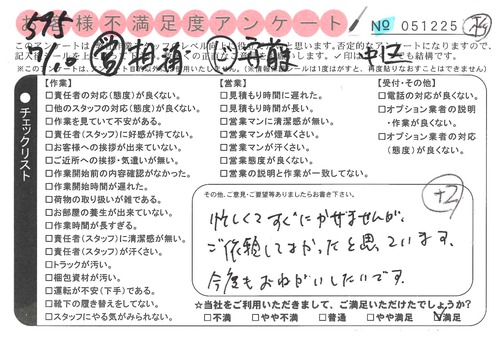 お客様不満足度アンケート
№ 051225
このアンケートは
※このアンケートは
【作業】
□責任者の対応(態度)が良くない。
□他のスタッフの対応(態度)が良くない。
□作業を見ていて不安がある。
□責任者(スタッフ)に好感が持てない。
□お客様への挨拶が出来ていない。
□ご近所への挨拶・気遣いが無い。
□作業開始前の内容確認がなかった。
□作業開始時間が遅れた。
□荷物の取り扱いが雑である。
□お部屋の養生が出来ていない。
□作業時間が長すぎる。
□責任者(スタッフ)に清潔感が無い。
□責任者(スタッフ)が汗くさい。
□トラックが汚い。
□梱包資材が汚い。
□運転が不安(下手)である。
□靴下の履き替えをしてない。
□スタッフにやる気がみられない。
【営業】
□見積もり時間に遅れた。
□見積もり時間が長い。
□営業マンに清潔感が無い。
□営業マンが煙草くさい。
□営業マンが汗くさい。
□営業態度が良くない。
□営業の説明と作業が一致してない。
【受付・その他】
□電話の対応が良くない。
□オプション業者の説明
・作業が良くない。
□オプション業者の対応
(態度)が良くない。
● チェックリスト
その他、ご意見・ご要望等ありましたらお書き下さい。
+2
忙しくてすぐにかせませんが、
ご依頼してよかったと思っています。
今度もおねがいしたいです。
☆当社をご利用いただきまして、ご満足いただけたでしょうか?
□不満 □やや不満 □普通 □やや満足 ☑満足